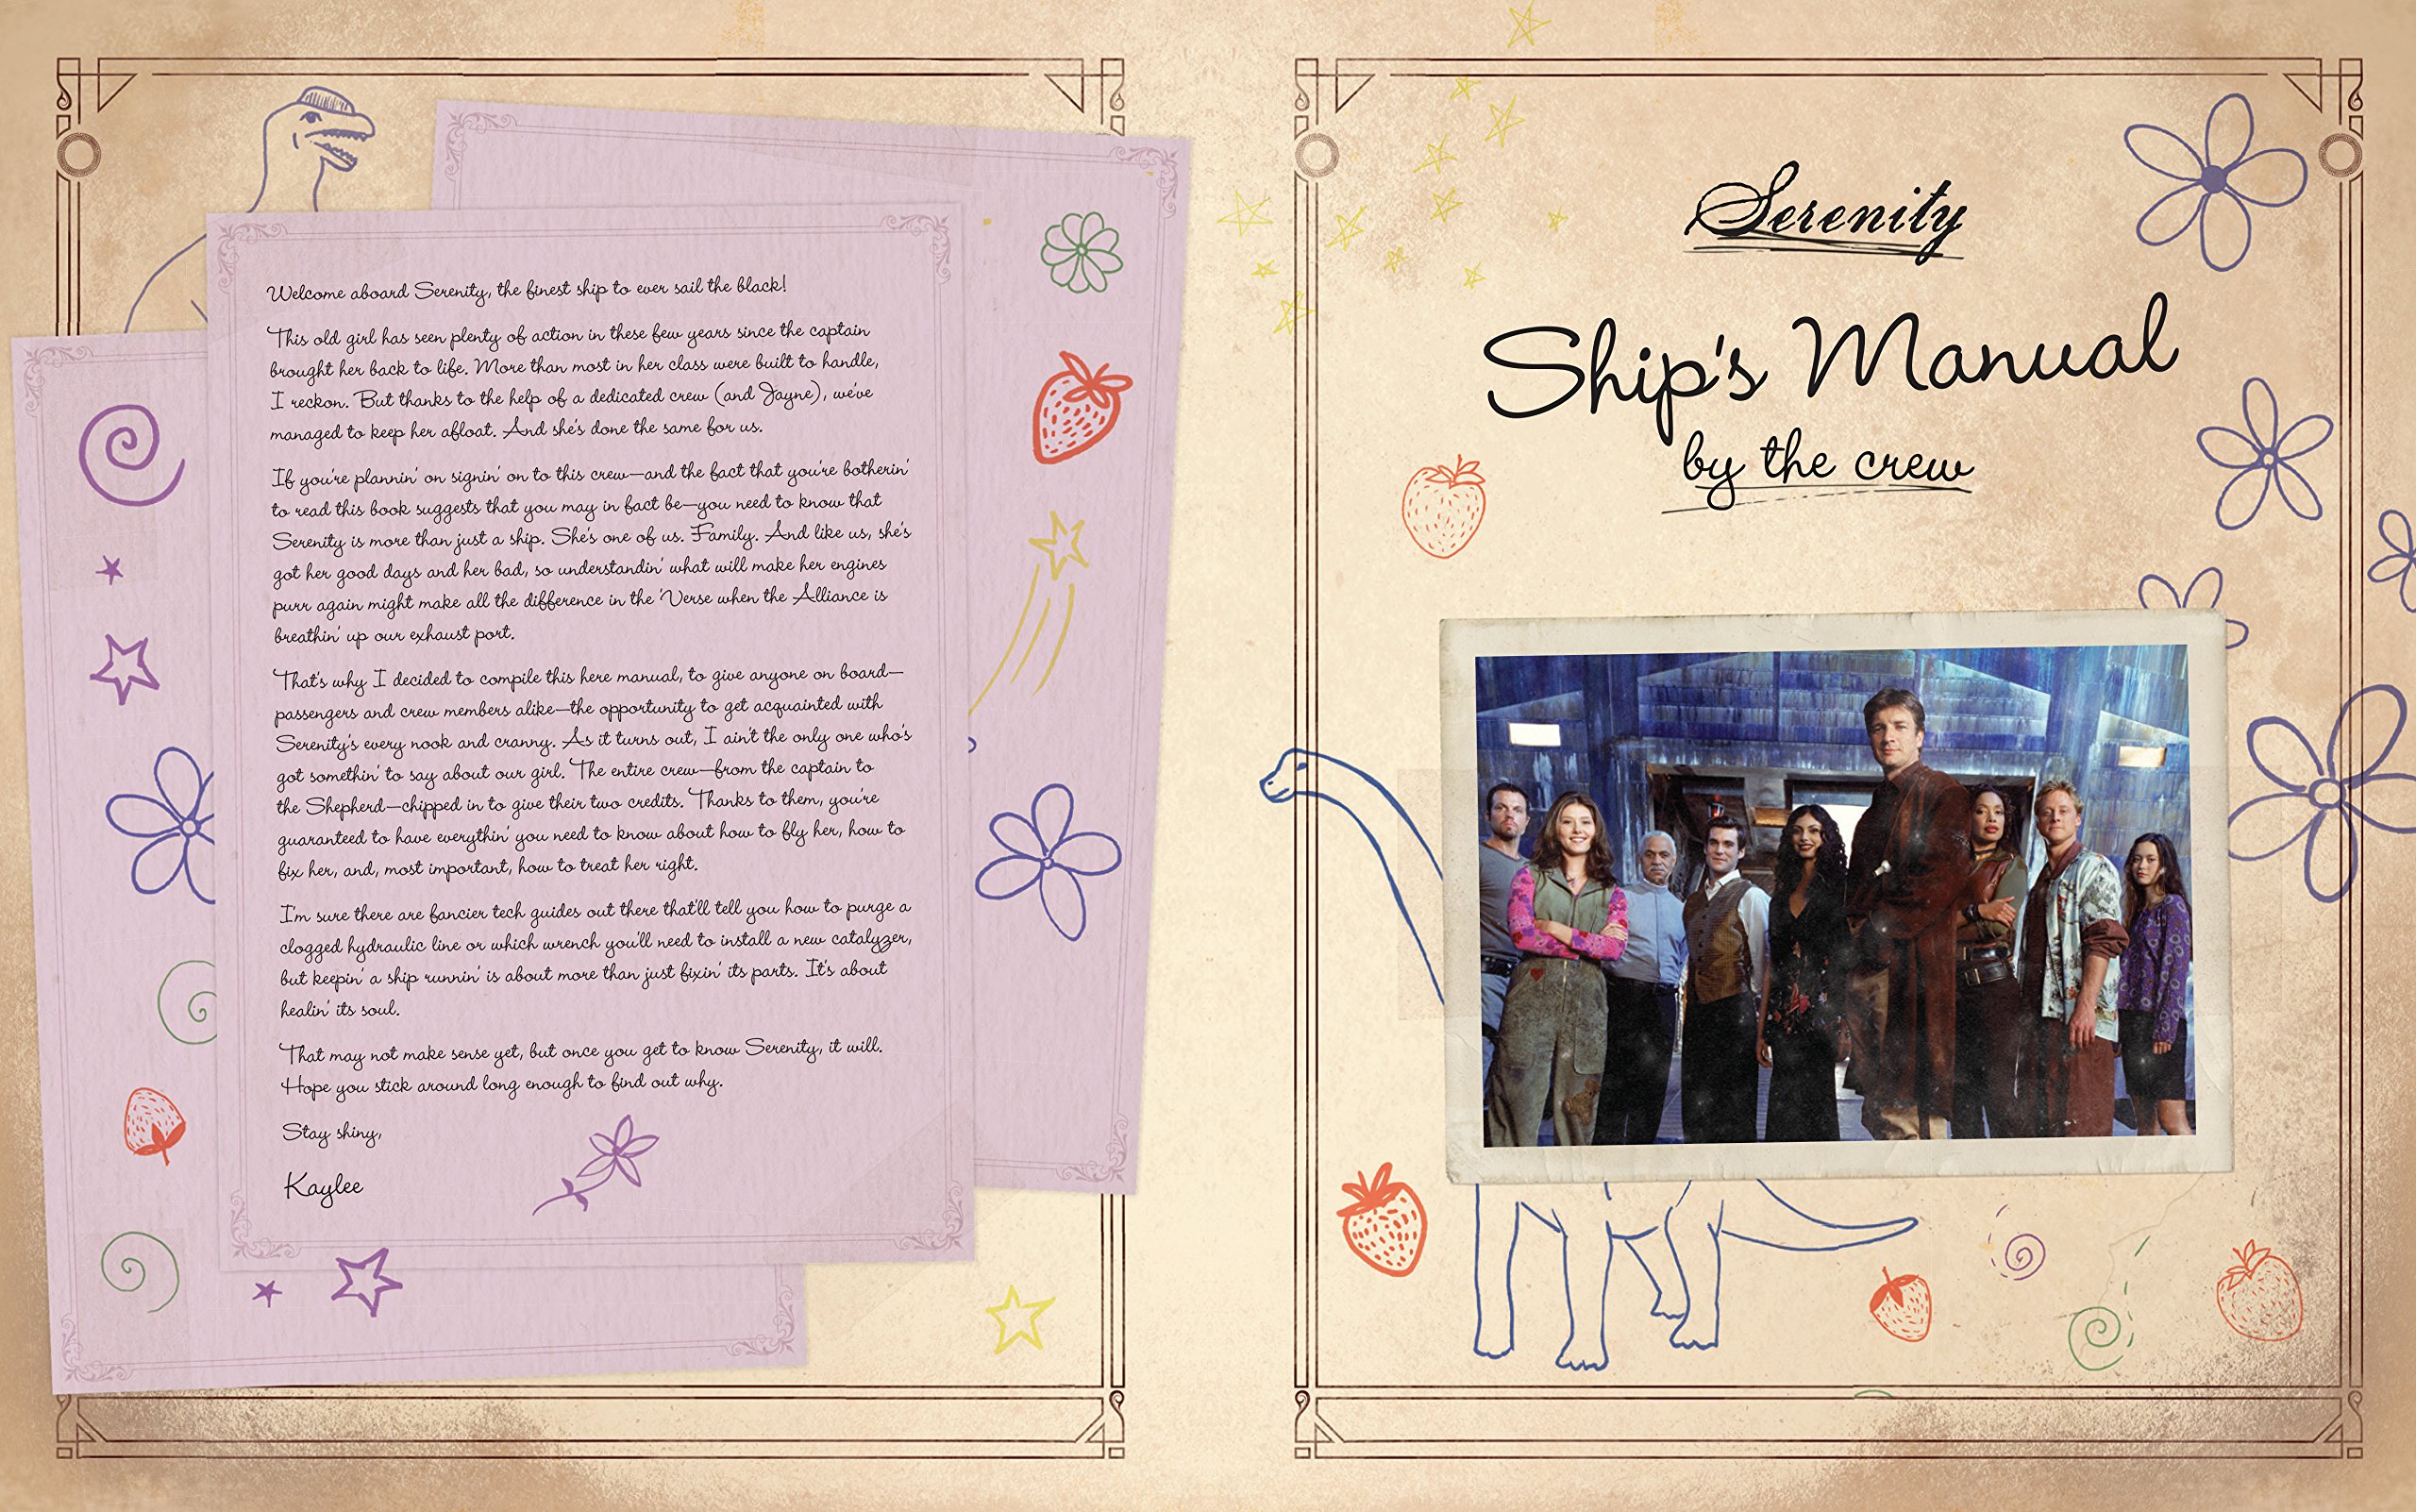 Welcome aboard Serenity, the finest ship to ever sail the black!
This old girl has seen plenty of action in these few years since the captain
brought her back to life. More than most in her class were built to handle,
I reckon. But thanks to the help of a dedicated crew (and Jayne), we've
managed to keep her afloat. And she's done the same for us.
If you're plannin' on signin' on to this crew—and the fact that you're botherin'
to read this book suggests that you may in fact be—you need to know that
Serenity is more than just a ship. She's one of us. Family. And like us, she's
got her good days and her bad, so understandin' what will make her engines
purr again might make all the difference in the 'Verse when the Alliance is
breathin' up our exhaust port.
That's why I decided to compile this here manual, to give anyone on board—
passengers and crew members alike—the opportunity to get acquainted with
Serenity's every nook and cranny. As it turns out, I ain't the only one who's
got somethin' to say about our girl. The entire crew—from the captain to
the Shepherd—chipped in to give their two credits. Thanks to them, you're
guaranteed to have everythin' you need to know about how to fly her, how to
fix her, and, most important, how to treat her right.
I'm sure there are fancier tech guides out there that'll tell you how to purge a
clogged hydraulic line or which wrench you'll need to install a new catalyzer,
but keepin' a ship runnin' is about more than just fixin' its parts. It's about
healin' its soul.
That may not make sense yet, but once you get to know Serenity, it will.
Hope you stick around long enough to find out why.
Stay shiny,
Kaylee
Serenity
Ship's Manual
by the crew